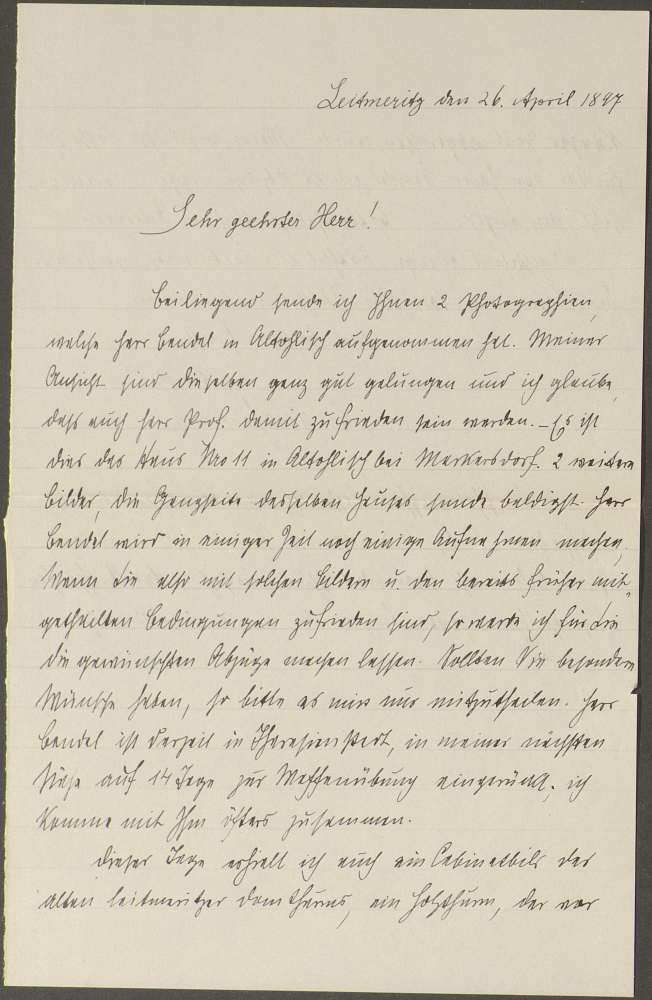 Leitmeritz den 26. April 1897
Sehr geehrter Herr!
Beiliegend sende ich Ihnen 2 Photographien,
welche Herr Bendel in Altohlisch aufgenommen hat. Meiner
Ansicht sind dieselben ganz gut gelungen und ich glaube,
dass auch Herr Prof. damit zufrieden sein werden. – Es ist
dies das Haus Nro 11 in Altohlisch bei Markersdorf. 2 weitere
Bilder, die Gangseite desselben Hauses sende baldigst. Herr
Bendel wird in einiger Zeit noch einige Aufnahmen machen,
Wenn Sie also mit solchen Bildern u. den bereits früher mit-
getheilten Bedingungen zufrieden sind, so werde ich für Sie
die gewünschten Abzüge machen lassen. Sollten Sie besondere
Wünsche haben, so bitte es mir nur mitzutheilen. Herr
Bendel ist derzeit in Theresienstadt, in meiner nächsten
Nähe auf 14 Tage zur Waffenübung eingerückt; ich
komme mit Ihm öfters zusammen.
Dieser Tage erhielt ich auch ein Cabinetbild des
alten leitmeritzer Domthurms, ein Holzthurm, der vor